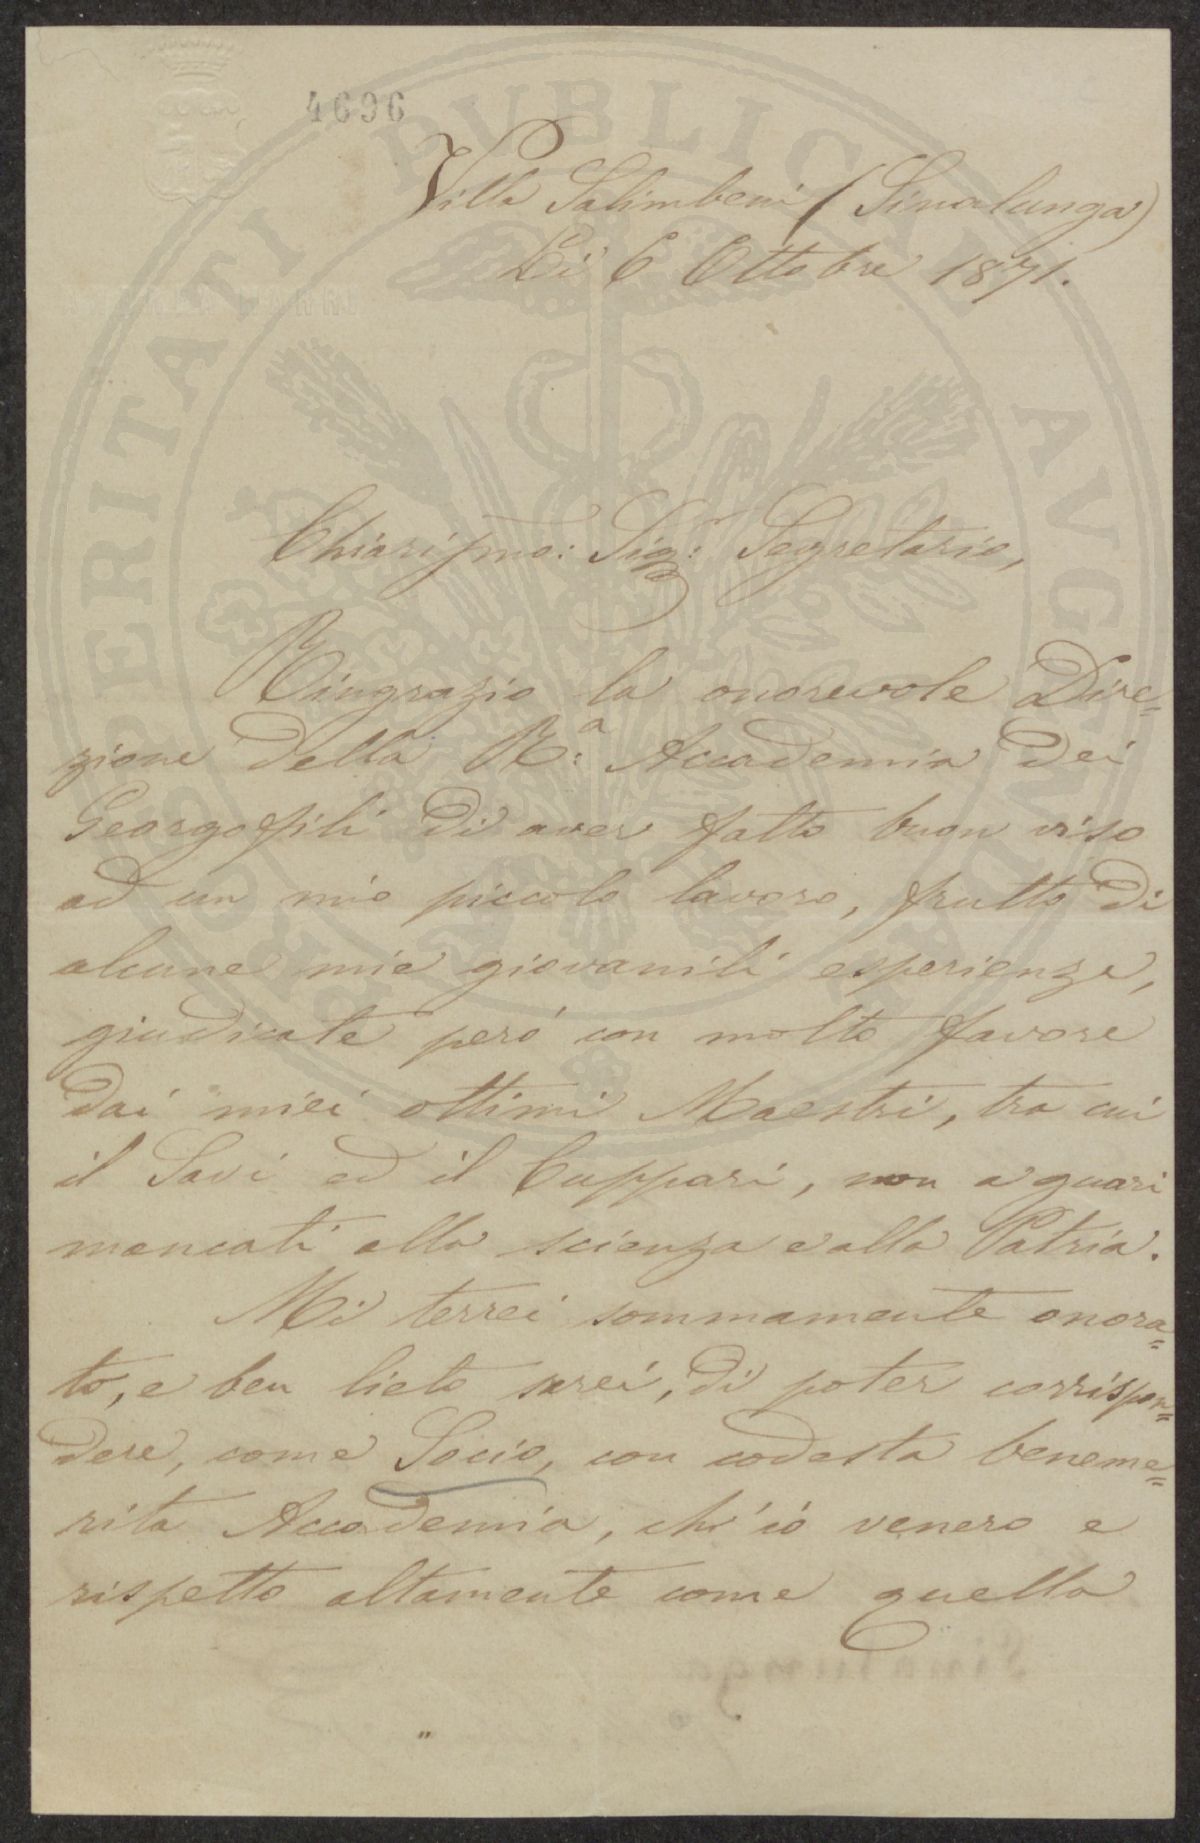 4696
Villa Salimbeni (Sinalunga)
Li 6 Ottobre 1871.
Chiarissmo: Sigr: Segretario,
Ringrazio la onorevole Dire=
zione della R:a Accademia dei
Georgofili di aver fatto buon viso
ad un mio piccolo lavoro, frutto di
alcune mie giovanili esperienze,
giudicate però con molto favore
dai miei ottimi Maestri, tra cui
il Savi ed il Cuppari, non a guari
mancati alla scienza e alla Patria.
Mi terrei sommamente onora=
to, e ben lieto sarei, di poter corrispon=
dere, come Socio, con codesta beneme=
rita Accademia, ch'io venero e
rispetto altamente come quella
"
Sinalunga
PROSPERITATI PUBLICAE AUGENDAE